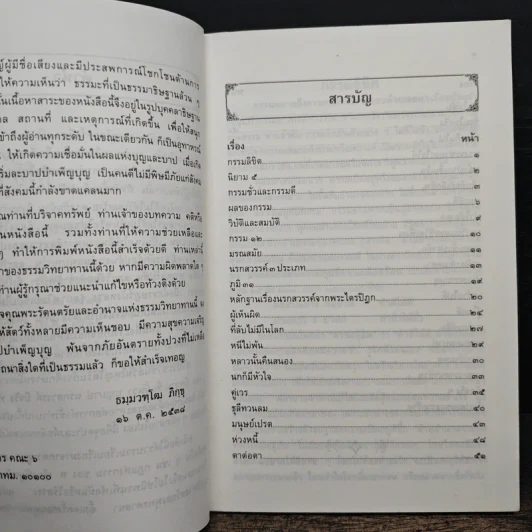 ผู้มีชื่อเสียงและมีประสพการณ์โชกโชนด้านการ
ให้ความเห็นว่า ธรรมะที่เป็นธรรมาธิษฐานล้วน
นั้นเนื้อหาสาระของหนังสือนี้จึงอยู่ในรูปบุคคลาธิษฐาน
ล สถานที่ และเหตุการณ์ที่เกิดขึ้น เพื่อให้สนุก
เข้าถึงผู้อ่านทุกระดับ ในขณะเดียวกัน ก็เป็นอุทาหรณ์
ให้เกิดความเชื่อมั่นในผลแห่งบุญและบาป เมื่อเกิด
ละบาปบำเพ็ญบุญ เป็นคนดีไม่มีพิษมีภัยแก่สังคม
ที่สังคมนี้กำลังขาดแคลนมาก
คุณท่านที่บริจาคทรัพย์ ท่านเจ้าของบทความ คติทวีธ
นหนังสือนี้ รวมทั้งท่านที่ให้ความช่วยเหลือและ
ๆ ทำให้การพิมพ์หนังสือนี้สำเร็จด้วยดี ท่านเหล่านี้
าของธรรมวิทยาทานนี้ด้วย หากมีความผิดพลาดใด ๆ
ท่านผู้รู้กรุณาช่วยแนะนำแก้ไขหรือท้วงติงด้วย
คุณพระรัตนตรัยและอำนาจแห่งธรรมวิทยาทานนี้
ให้สัตว์ทั้งหลายมีความเห็นชอบ มีความสุขความเจริญ
บำเพ็ญบุญ พ้นจากภัยอันตรายทั้งปวงที่ไม่
ถนาสิ่งใดที่เป็นธรรมแล้ว ก็ขอให้สำเร็จเทอญ
ธมฺมวฑฺโฒ ภิกฺขุ
๑๖ ต.ค. ๒๕๓๘
คณะ ๖
กทม. ๑๐๑๐๐
สารบัญ
เรื่อง หน้า
กรรมลิขิต ๑
นิยาม ๕ ๒
กรรมชั่วและกรรมดี ๓
ผลของกรรม ๖
วิบัติและสมบัติ ๙
กรรม ๑๒ ๑๐
มรณสมัย ๑๑
นรกสวรรค์ ๓ ประเภท ๑๓
ภูมิ ๓๑ ๑๙
หลักฐานเรื่องนรกสวรรค์จากพระไตรปิฎก ๒๐
ผู้เห็นผิด ๒๔
ที่ลับไม่มีในโลก ๒๗
หนีไม่พ้น ๒๙
หลาวนั้นคืนสนอง ๓๐
นกก็มีหัวใจ ๓๓
คู่เวร ๓๕
ธุลีทวนลม ๔๐
มนุษย์เปรต ๔๓
ห่วงหนี้ ๔๘
ตาต่อตา ๕๑